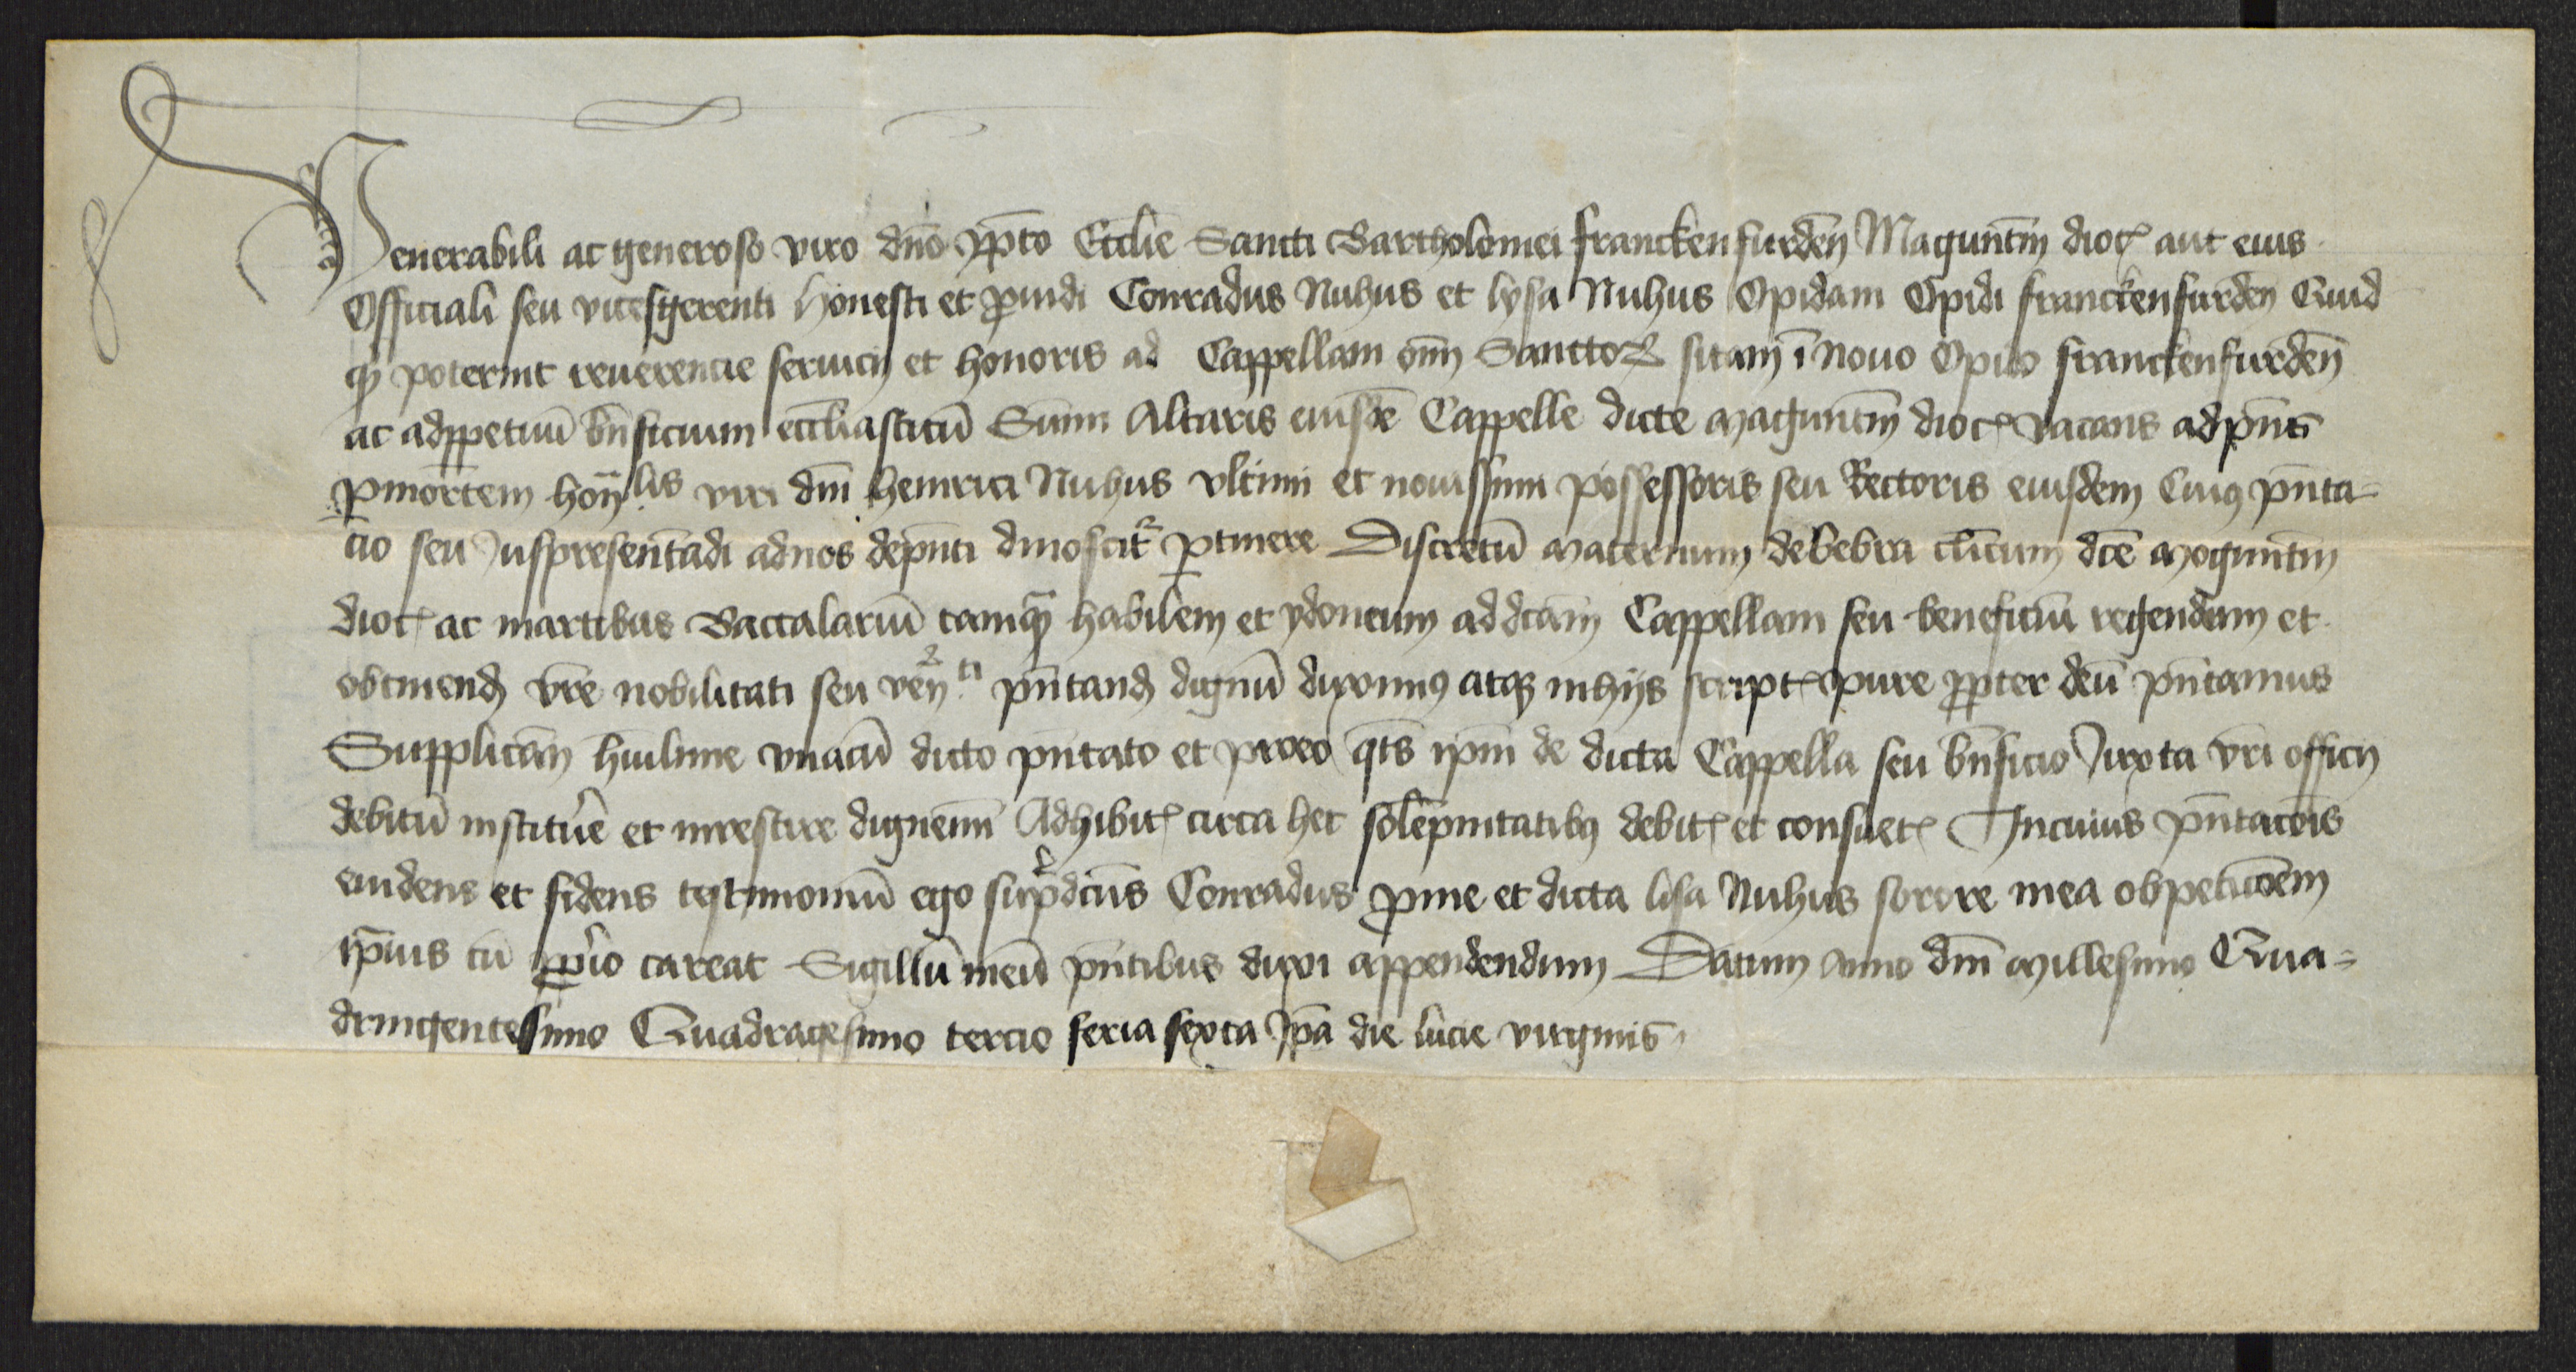 Venerabili ac generoso viro dño p̱p̄to Ecclie Sancti Bartholomei franckenfurdeñ Maguntiñ dioc̄ aut eius
Officiali seu vicesgerenti honesti et ꝓuidi Conradus Nuhus et lysa Nuhus Opidani Opidi franckenfurdeñ Quid
qͥd poterint reuerencie seruicij et honoris ad Cappellam om̄ Sanctoꝝ sitam ī Nouo Opido franckenfurdeñ
ac ad ꝑpetuū bn̄ficium eccliasticū Summi Altaris eiusdē Cappelle dicte Maguntiñ dioc̄ vacans ad pn̄s
ꝑ mortem hoñlis viri dñi heinrici Nuhus vltimi et nouissimi possessoris seu Rectoris eiusdem Cuiꝰ pn̄ta-
cio seu Juspresentādi ad nos de pn̄ti dinoscit᷑ ꝑtinere Discretū Maternum de bebra clicum dc̄e Moguntiñ
dioc̄ ac in artibus Baccalariū tamqᷓ habilem et ydoneum ad dc̄am Cappellam seu beneficiū regendum et
obtinend̄ vr̄e nobilitati seu veñ.ti pn̄tand̄ dignū duximꝰ atqꝫ in hijs script̄ pure ꝓpter deū pn̄tamus
Supplicañ hūilime vnacū dicto pn̄tato et pro eo qͣts ip̄m de dicta Cappella seu bn̄ficio Juxta vr̄i officij
debitū instituͤe et inuestire dignemī Adhibit̄ circa hec solēpnitatibꝰ debit̄ et consuet̄ In cuius pn̄tacōis
euidens et fidens testimoniū ego supͣdc̄us Conradus ꝓ me et dicta lisa Nuhus sorore mea ob peticōem
ip̄ius cū ꝓpͥo careat Sigillū meū pn̄tibus duxi appendendum Datum Anno dñi Millesimo Qua-
dringentesimo Quadragesimo tercio feria sexta Ip̄a die lucie virginis